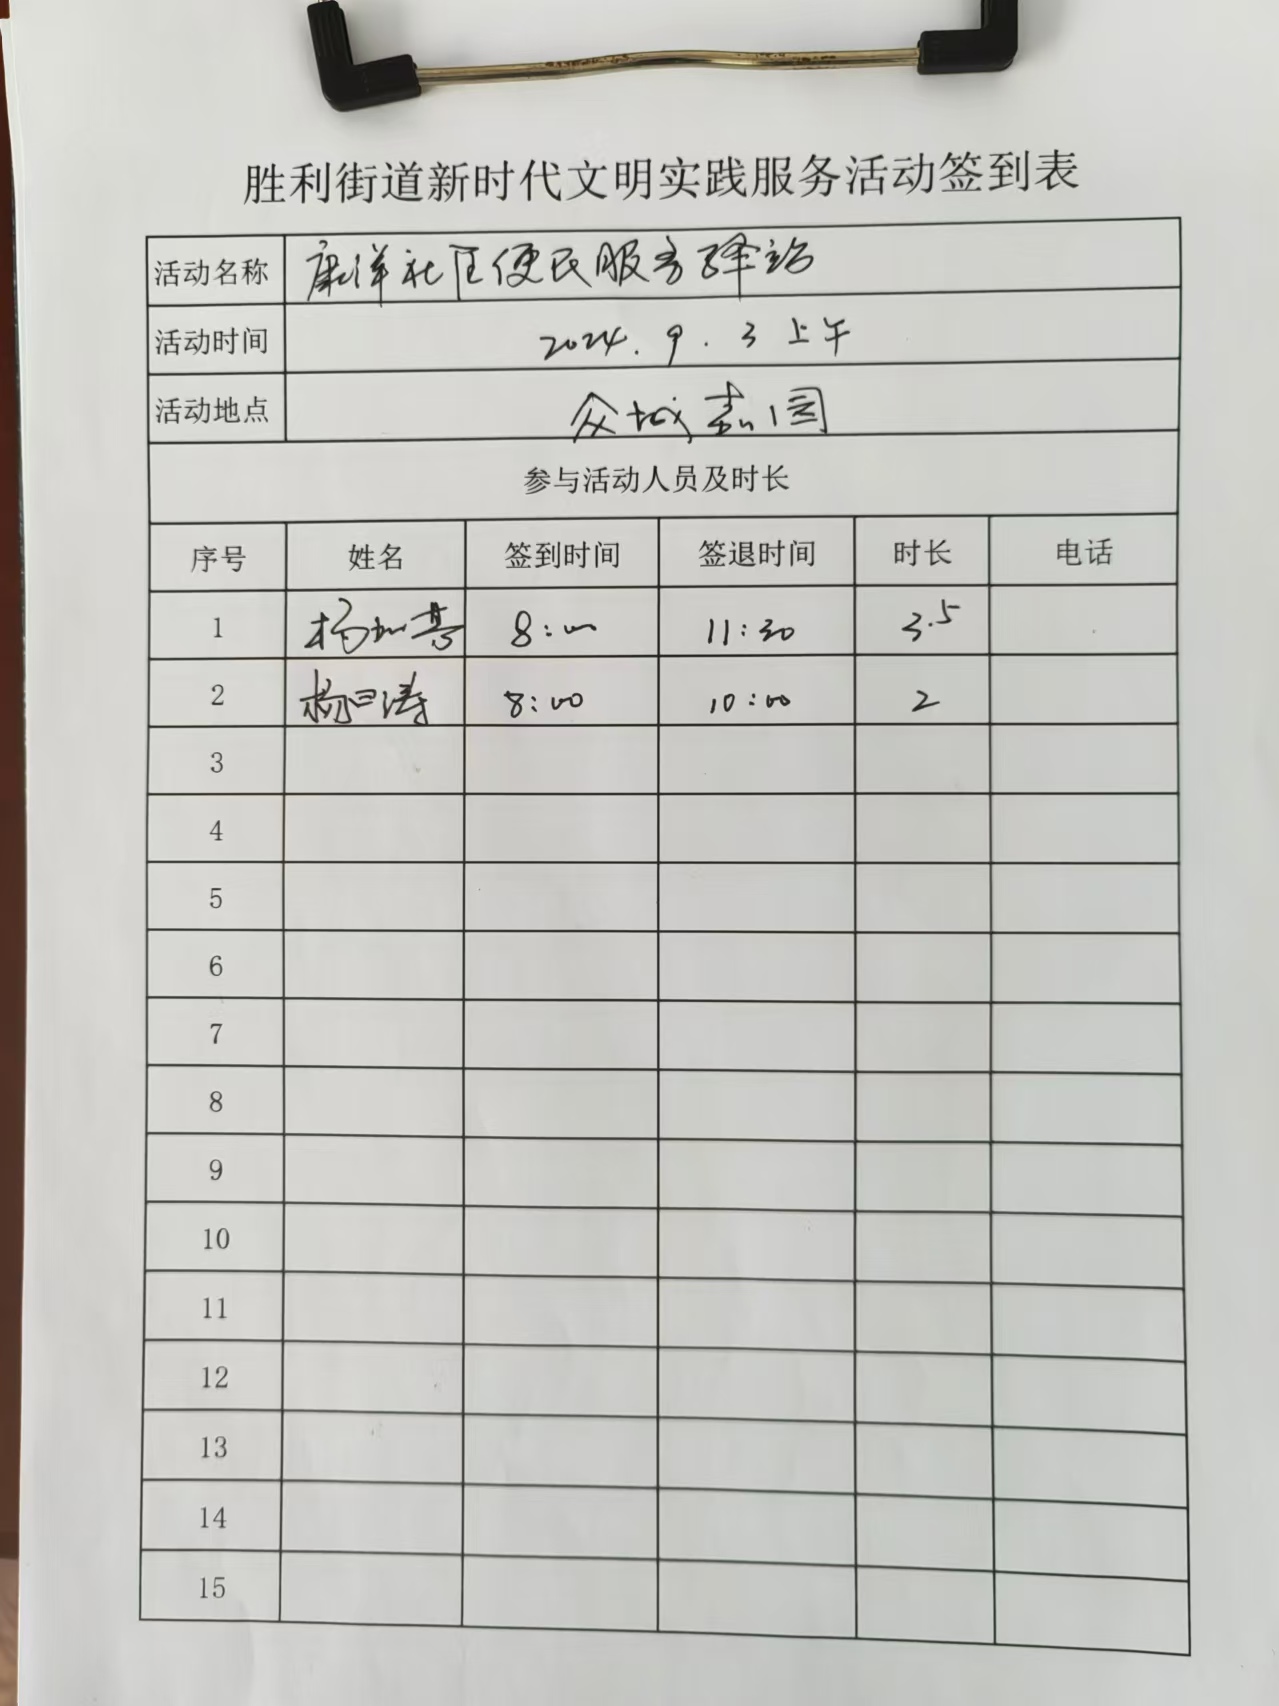 胜利街道新时代文明实践服务活动签到表
活动名称 康洋社区便民服务驿站
活动时间 2024.9.3上午
活动地点 众城嘉园
参与活动人员及时长
序号 姓名 签到时间 签退时间 时长 电话
1 杨 8:00 11:30 3.5
2 涛 8:00 10:00 2
3
4
5
6
7
8
9
10
11
12
13
14
15